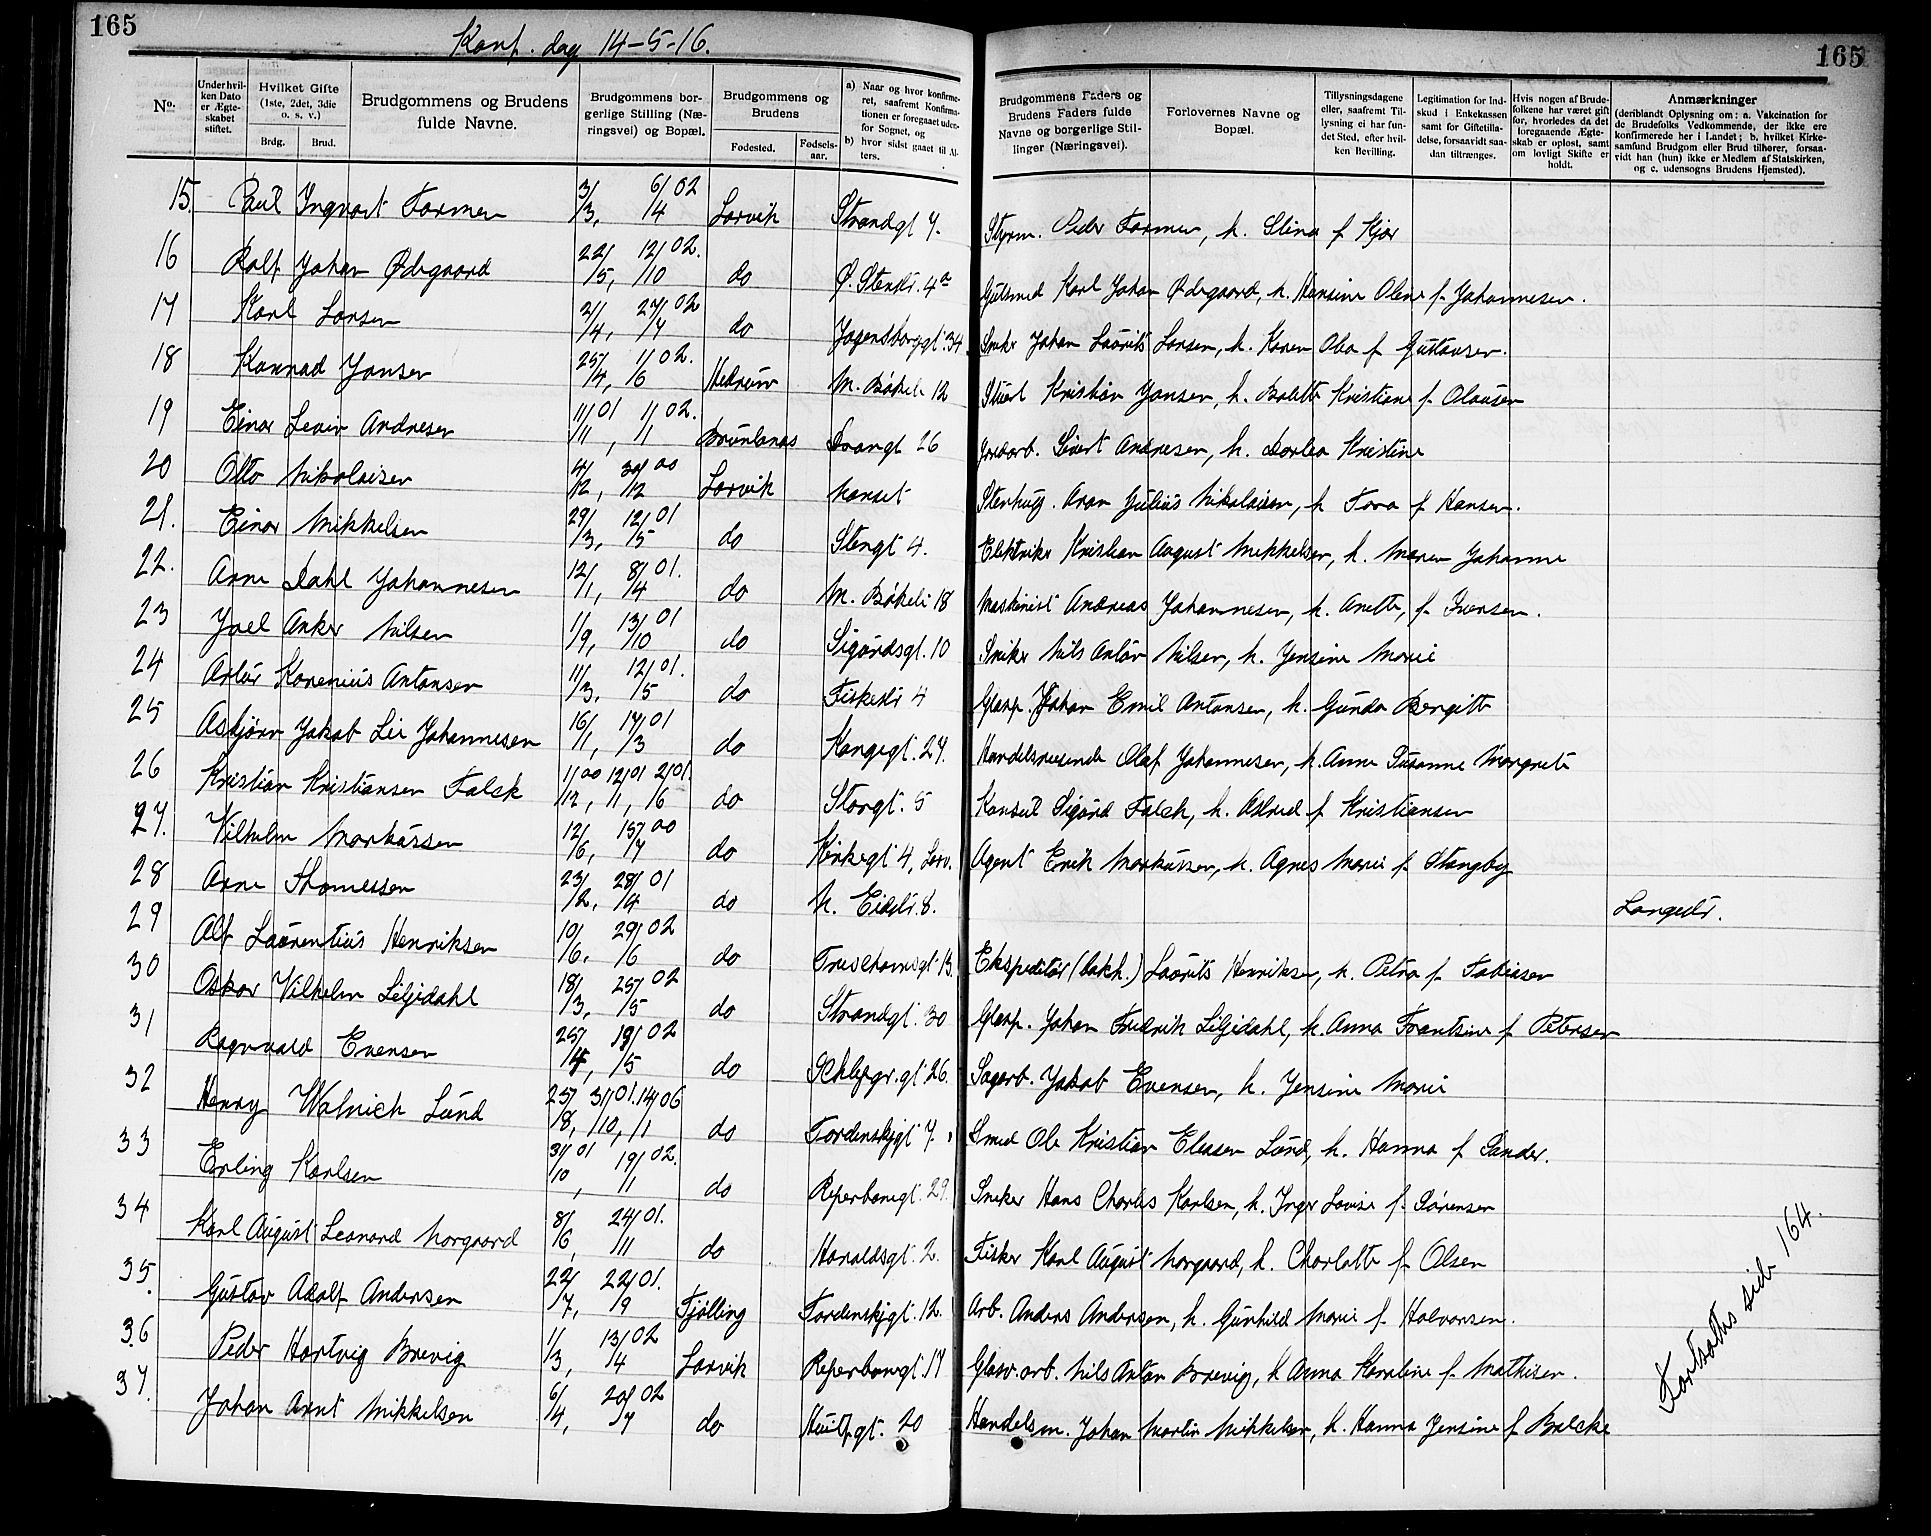 165
165
Konf. dag 14-5-16.
No.
Under hvilken Dato er Ægteskabet stiftet.
Hvilket Gifte (1ste, 2det, 3die o. s. v.)
Brdg.
Brud.
Brudgommens og Brudens fulde Navne.
Brudgommens borgerlige Stilling (Næringsvei) og Bopæl.
Brudgommens og Brudens
Fødested.
Fødselsaar.
a) Naar og hvor konfirmeret, saafremt Konfirmationen er foregaaet udenfor Sognet, og
b) hvor sidst gaaet til Alters.
Brudgommens Faders og Brudens Faders fulde Navne og borgerlige Stillinger (Næringsvei).
Forlovernes Navne og Bopæl.
Tillysningsdagene eller, saafremt Tillysning ei har fundet Sted, efter hvilken Bevilling.
Legitimation for Indskud i Enkekassen samt for Giftetilladelse, forsaavidt saadan tiltrænges.
Hvis nogen af Brudefolkene har været gift før, hvorledes da det foregaaende Ægteskab er opløst, samt om lovligt Skifte er holdt.
Anmærkninger
(deriblandt Oplysning om: a. Vakcination for de Brudefolks Vedkommende, der ikke ere konfirmerede her i Landet; b. hvilket Kirkesamfund Brudgom eller Brud tilhører, forsaavidt han (hun) ikke er Medlem af Statskirken, og c. udensogns Brudens Hjemsted).
15. Paul Ingvart Farmen 3/3, 6/4 02 Larvik Strandgt 7. Styrm. Peder Farmen, h. Stina f Kjær
16 Rolf Johan Ødegaard 22/5, 12/10 02. do Ø. Stenstr. 4a Gulsmed Karl Johan Ødegaard, h. Hansine Oline f. Johannesen.
17 Karl Larsen 2/4, 27/7 02 do Jagensborggt. 34 Sniker Johan Laurits Larsen, h. Karen Oba f Gustavsen.
18 Konrad Jansen 25/4, 1/6 02. Hedrum M. Bøkeli 12 Stuert Kristian Jansen, h. Bolette Kristiane f. Olausen
19 Einar Levin Andresen 11/11 01, 1/1 02. Brunlanes Dronngt 26 Jordarb. Sivert Andresen, h. Dorlea Kristine
20 Otto Nikolaisen 4/2, 30/12 00 Larvik Nanset Stenhug. Aron Julius Nikolaisen, h Tora f Hansen.
21. Einar Mikkelsen 29/3, 12/5 01 do Stengt 4. Elektriker Kristian August Mikkelsen, h. Maren Johanne
22. Arne Dahl Johannesen 12/1, 8/4 01. do M. Bøkeli 18 Maskinist Andreas Johannesen, h. Anette, f. Iversen.
23 Joel Anker Nilsen 1/9, 13/10 01 do Sigurdsgt. 10 Sniker Nils Anton Nilsen, h. Jensine Marie
24 Artur Karenius Antonsen 11/3, 12/5 01. do Fiskestr 4 Glasp. Johan Emil Antonsen, h. Gunda Bergitte
25 Asbjørn Jakob Lie Johannesen 16/1, 17/3 01 do Kongegt. 27. Handelsreisende Olaf Johannesen, h. Anne Susanne Margrete
26 Kristian Kristiansen Falck 1/12 00, 12/11 01, 2/6 01. do Storgt. 5 Konsul Sigurd Falck, h. Astrud f Kristiansen
27. Vilhelm Markussen 12/6, 15/7 00 do Kirkegt 4, Larv. Agent Erik Markussen, h. Agnes Marie f Stangeby
28 Arne Thomessen 23/2, 28/4 01 do N. Eidstr. 8. Langestr.
29 Alf Laurentius Henriksen 10/6, 29/6 02 do Treschowsgt. 13. Ekspeditør (bakh.) Laurits Henriksen, h. Petra f. Tobiasen
30 Oskar Vilhelm Liljedahl 18/3, 25/5 02 do Strandgt. 30 Glasp. Johan Fredrik Liljedahl, h. Anna Frantsine f Petersen
31 Ragnvald Evensen 25/4, 19/5 02 do Schlepgr. gt 26. Sagarb. Jakob Evensen, h. Jensine Marie
32 Henry Walnich Lund 25/18, 31/10 01. 14/1 06 do Tordenskjgt 7. Smed Ole Kristian Eleasen Lund, h. Hanna f Sander.
33 Erling Karlsen 31/10 01, 19/1 02. do Reperbanegt. 29. Sniker Hans Charles Karlsen, h. Inger Lovise f. Sørensen
34 Karl August Leonard Norgaard 8/6, 24/11 01. do Haraldsgt. 2. Fisker Karl August Norgaard, h. Charlotte f. Olsen
35. Gustav Adolf Andersen 22/7, 22/9 01. Fjølling Tordenskjgt. 12. Arb. Anders Andersen, h. Gunhild Marie f. Halvorsen.
36 Peder Hartvig Brevig 1/3, 13/4 02 Larvik Reperbanegt. 17 Glasv. arb. Nils Anton Brevig, h Anna Karoline f. Mathisen.
37. Johan Arnt Mikkelsen 6/4, 20/7 02 do Huitfgt. 20 Handelsm. Johan Martin Mikkelsen, h. Hanna Jensine f Balcke
Fortsættes side 164.